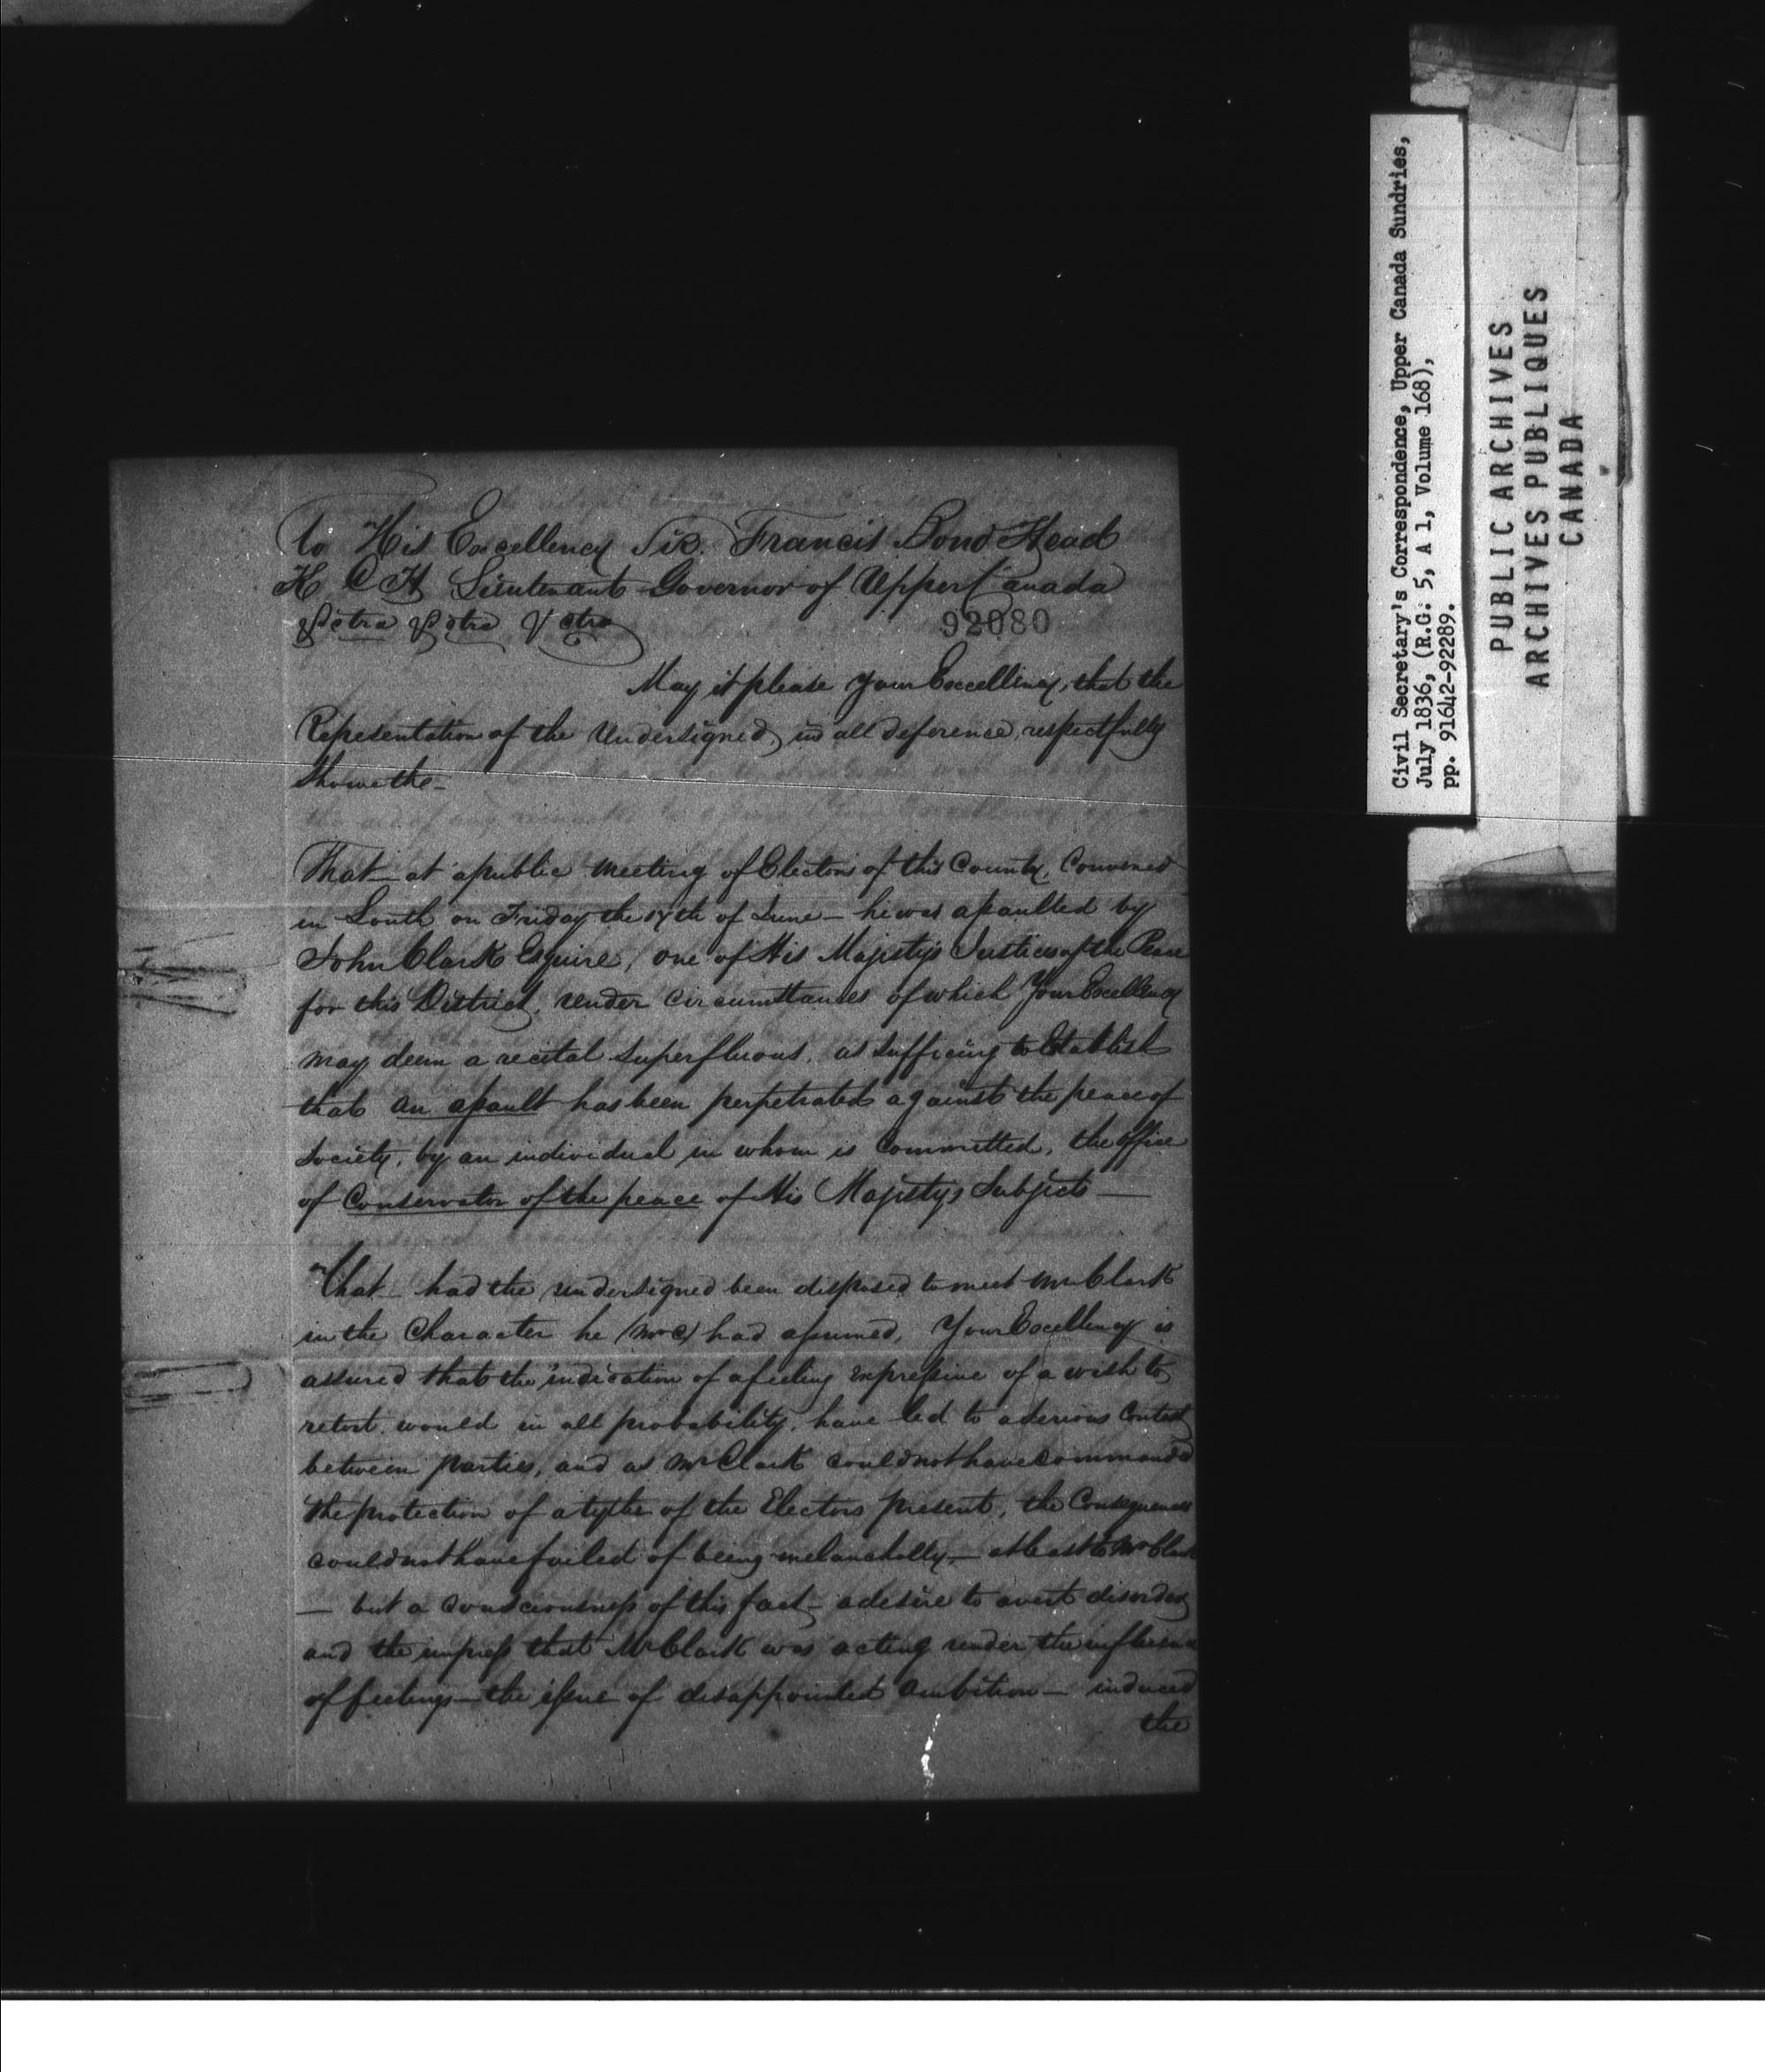 To His Excellency Sir. Francis Bond Head
K C H Lieutenant Governor of Upper Canada
&cetra &cetra &cetra
92080
May it please Your Excellency, that the
Representation of the Undersigned, in all deference, respectfully
Showeth-
That at a public meeting of Electors of this County, Convened
in Louth on Friday the 17th of June — he was assaulted by
John Clark Esquire, one of His Majestys Justices of the Peace
for this District, under circumstances of which Your Excellency
may deem a recital superfluous, as sufficing to Establish
that an assault has been perpetrated against the peace of
Society, by an individual in whom is Committed, the office
of Conservator of the peace of His Majestys Subjects —
That had the undersigned been disposed to meet Mr Clark
in the Character he (Mr C) had assumed, Your Excellency is
assured that the indication of a feeling expressive of a wish to
retort, would in all probability, have led to a serious Contest
between parties, and as Mr Clark could not have commanded
the protection of a tythe of the Electors present, the Consequences
could not have failed of being melancholly — at least to Mr Clark
— but a consciousness of this fact — a desire to avert disorder
and the impress that Mr Clark was acting under the influence
of feelings — the issue of disappointed Ambition — induced
the
Civil Secretary's Correspondence, Upper Canada Sundries,
July 1836, (R.G. 5, A 1, Volume 168),
pp. 91642-92289.
PUBLIC ARCHIVES
ARCHIVES PUBLIQUES
CANADA